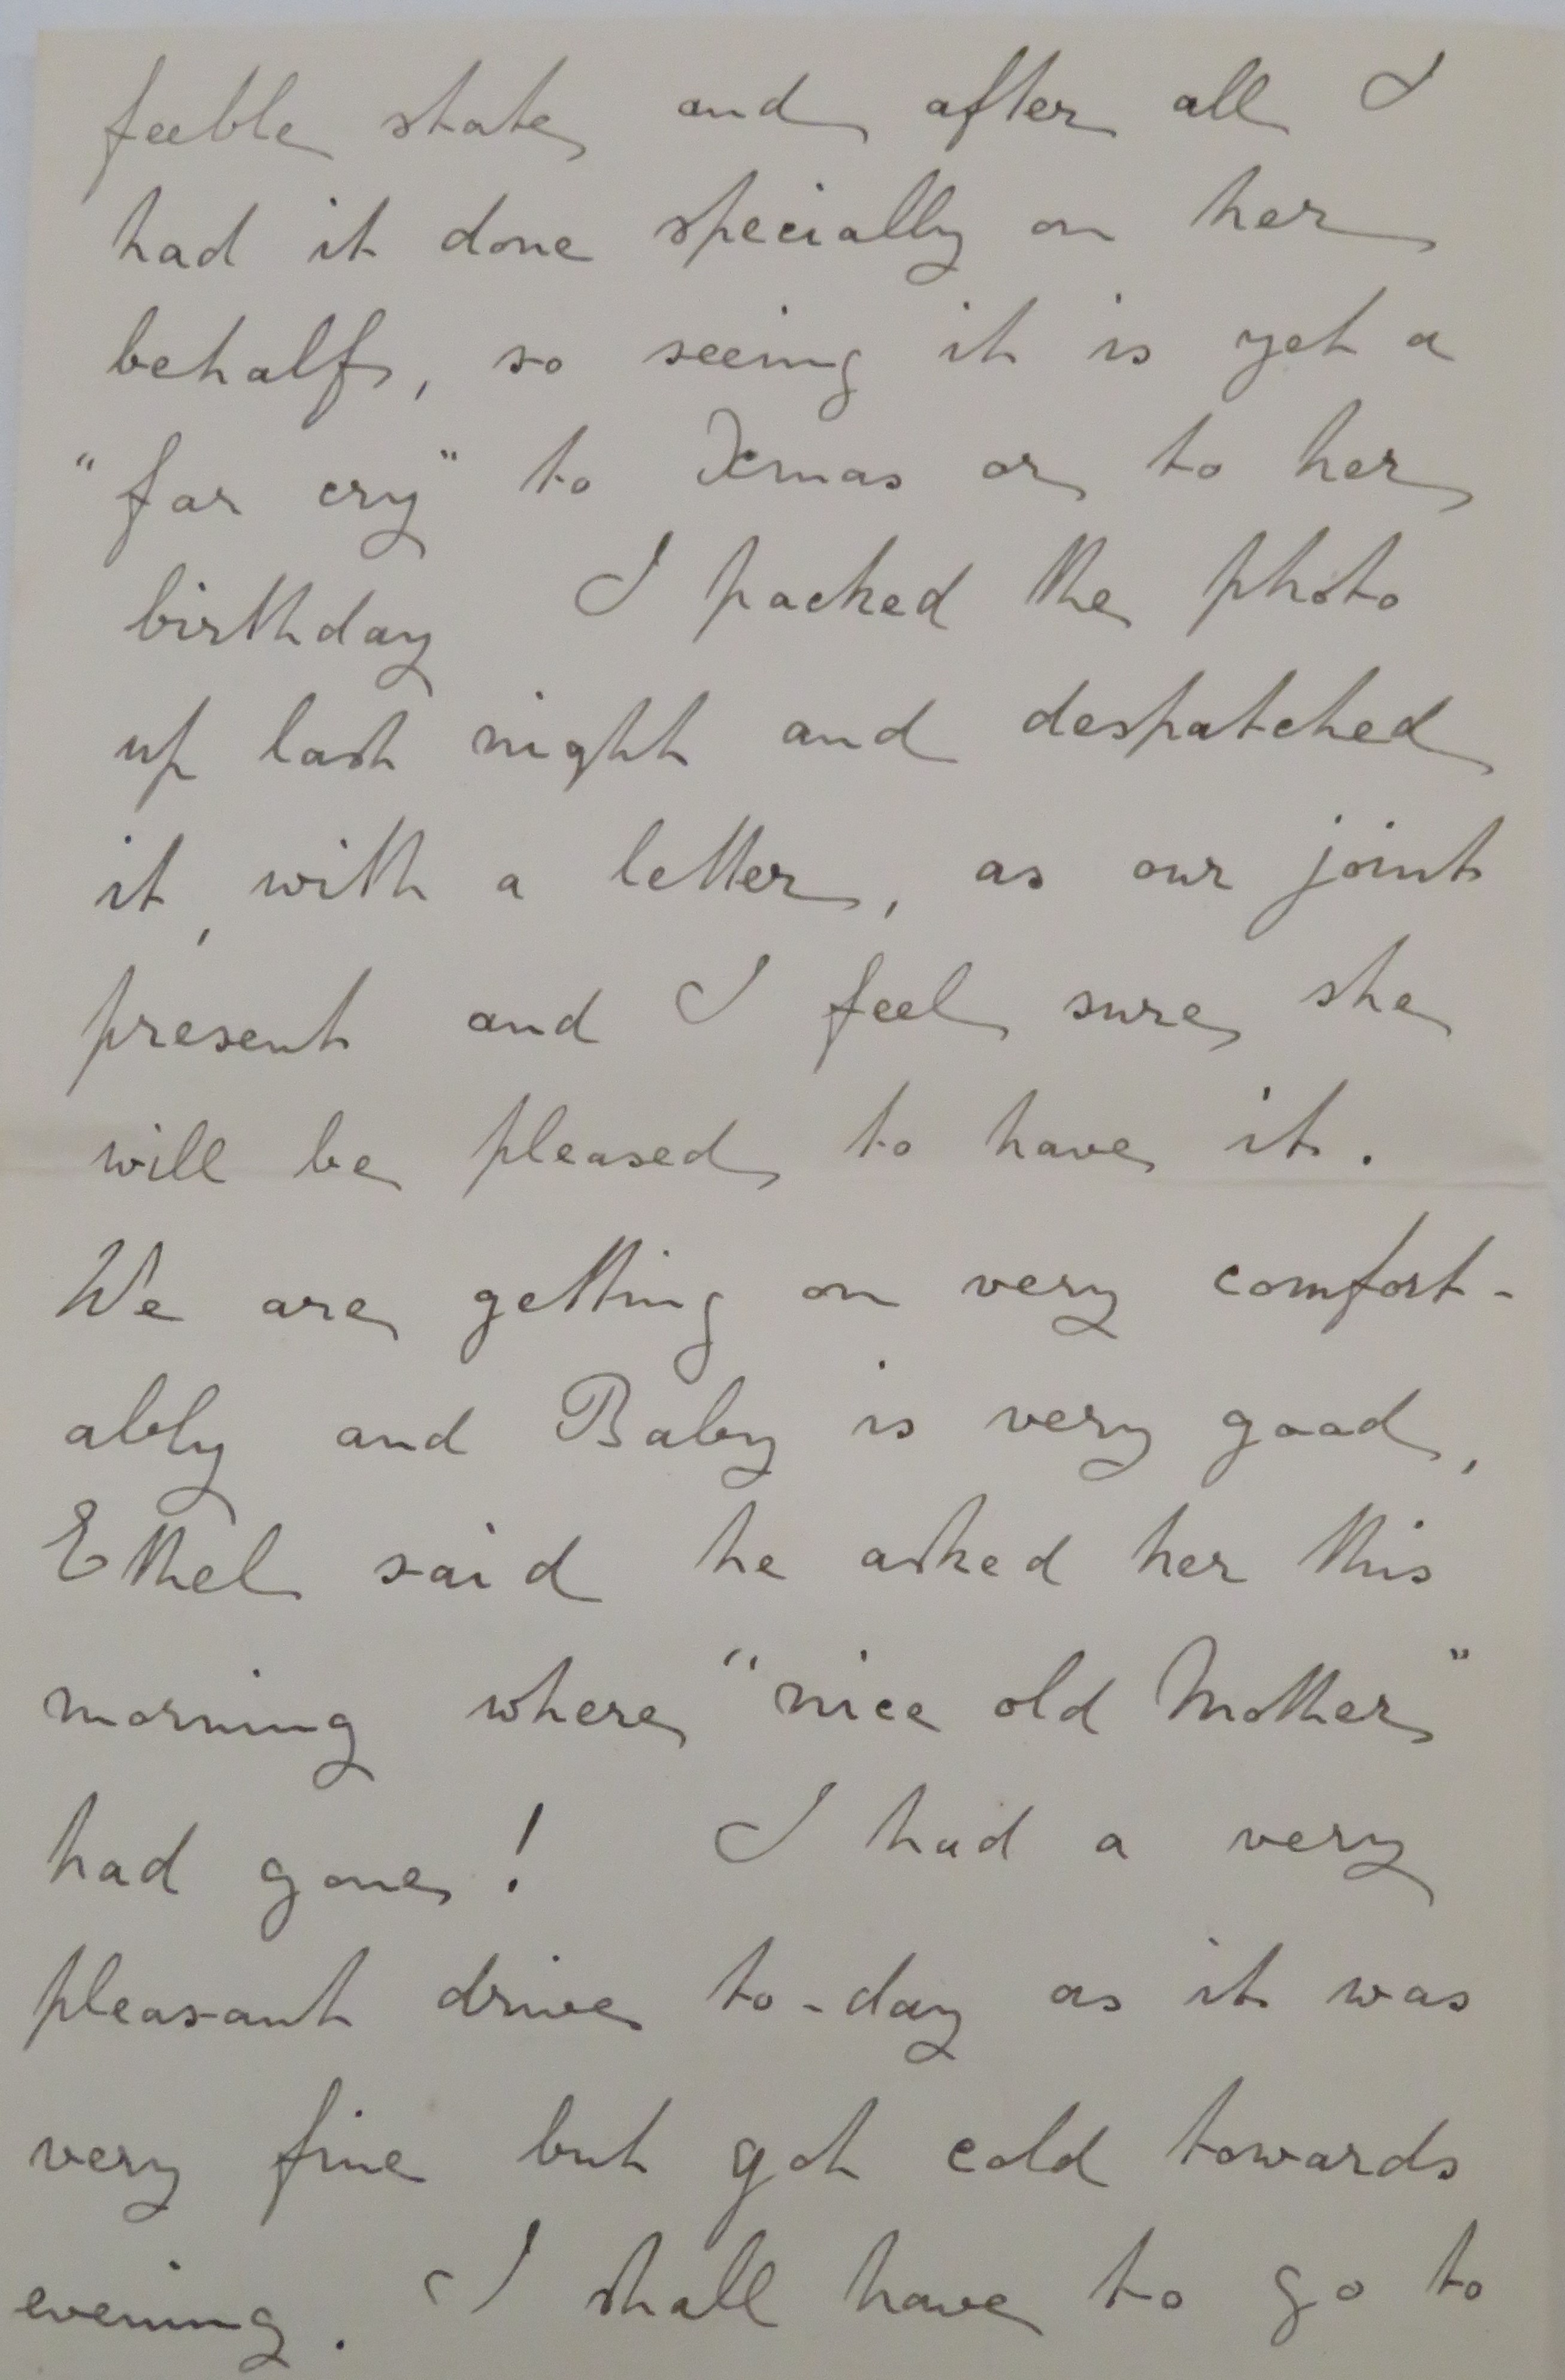 feeble state and after all I
had it done specially on her
behalf, so seeing it is yet a
"far cry" to Xmas or to her
birthday I packed the photo
up last night and despatched
it, with a letter, as our joint
present and I feel sure she
will be pleased to have it.
We are getting on very comfort-
ably and Baby is very good,
Ethel said he asked her this
morning where "nice old Mother"
had gone! I had a very
pleasant drive to-day as it was
very fine but got cold towards
evening. I shall have to go to